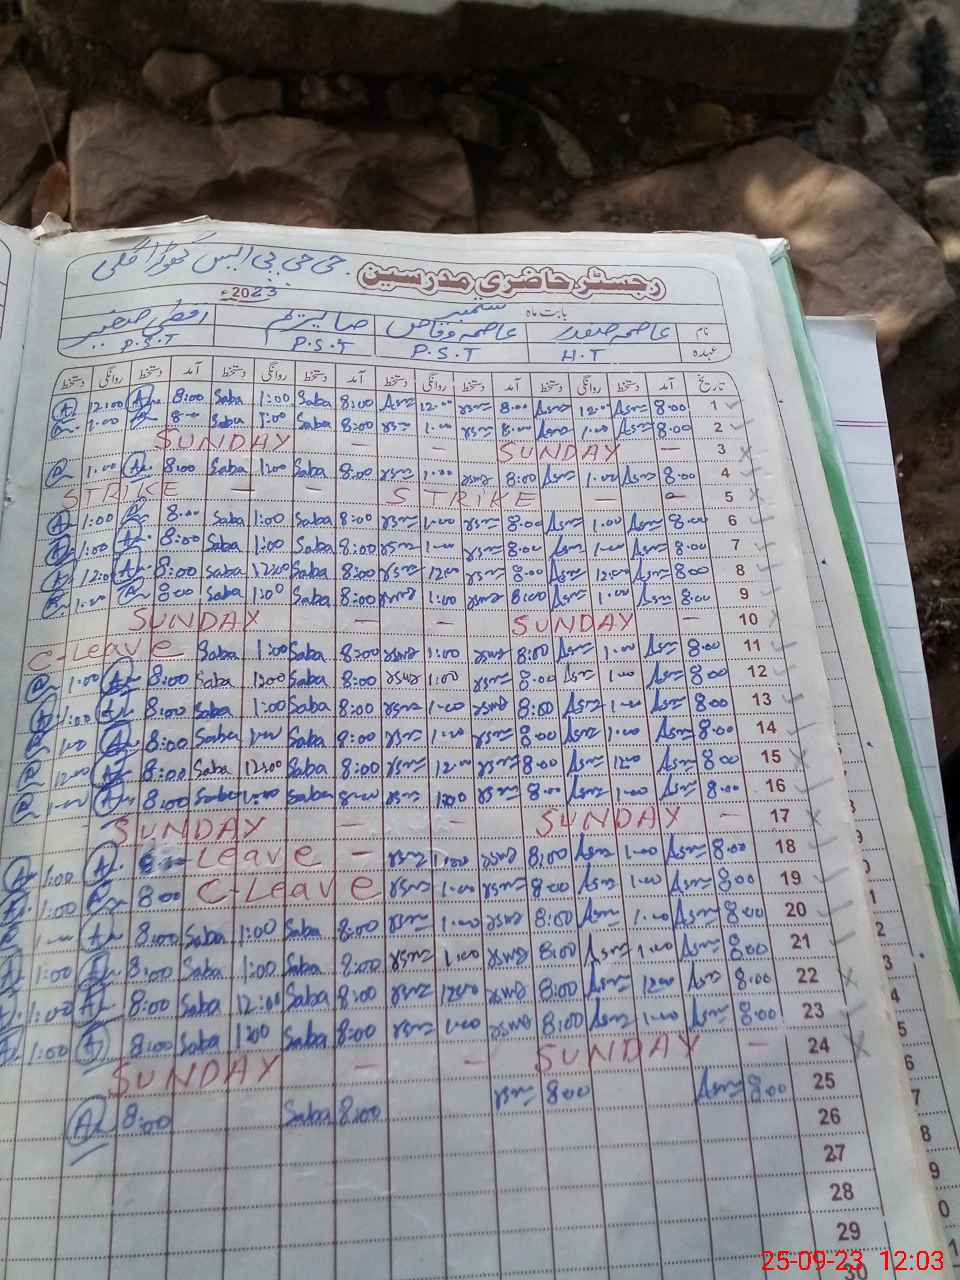 جی جی پی ایس گھوڑا گلی
رجسٹر حاضری مدرسین
بابت ماہ ستمبر 2023ء
نام عاصمہ صفدر عاصمہ وقاص صبا
عہدہ H.T P.S.T P.S.T P.S.T
تاریخ آمد دستخط روانگی دستخط آمد دستخط روانگی دستخط آمد دستخط روانگی دستخط آمد دستخط روانگی دستخط
12:00 8:00 Saba 1:00 Saba 8:00 12:00 8:00 12:00 8:00 1
1:00 8:00 Saba 1:00 Saba 8:00 1:00 8:00 1:00 8:00 2
SUNDAY — SUNDAY — 3
1:00 8:00 Saba 1:00 Saba 8:00 1:00 8:00 1:00 8:00 4
STRIKE — — STRIKE — — 5
1:00 8:00 Saba 1:00 Saba 8:00 1:00 8:00 1:00 8:00 6
1:00 8:00 Saba 1:00 Saba 8:00 1:00 8:00 1:00 8:00 7
12:00 8:00 Saba 12:00 Saba 8:00 12:00 8:00 12:00 8:00 8
1:00 8:00 Saba 1:00 Saba 8:00 1:00 8:00 1:00 8:00 9
SUNDAY — — SUNDAY — 10
C-Leave Saba 1:00 Saba 8:00 1:00 8:00 1:00 8:00 11
1:00 8:00 Saba 1:00 Saba 8:00 1:00 8:00 1:00 8:00 12
1:00 8:00 Saba 1:00 Saba 8:00 1:00 8:00 1:00 8:00 13
1:00 8:00 Saba 1:00 Saba 8:00 1:00 8:00 1:00 8:00 14
12:00 8:00 Saba 12:00 Saba 8:00 12:00 8:00 1200 8:00 15
1:00 8:00 Saba 1:00 Saba 8:00 1:00 8:00 1:00 8:00 16
SUNDAY — — SUNDAY — 17
1:00 Leave — 1:00 8:00 1:00 8:00 18
1:00 8:00 C-Leave 1:00 8:00 1:00 8:00 19
1:00 8:00 Saba 1:00 Saba 8:00 1:00 8:00 1:00 8:00 20
1:00 8:00 Saba 1:00 Saba 8:00 1:00 8:00 1:00 8:00 21
1:00 8:00 Saba 12:00 Saba 8:00 1200 8:00 1200 8:00 22
1:00 8:00 Saba 1:00 Saba 8:00 1:00 8:00 1:00 8:00 23
SUNDAY — — SUNDAY — 24
8:00 Saba 8:00 8:00 8:00 25
26
27
28
29
30
25-09-23 12:03